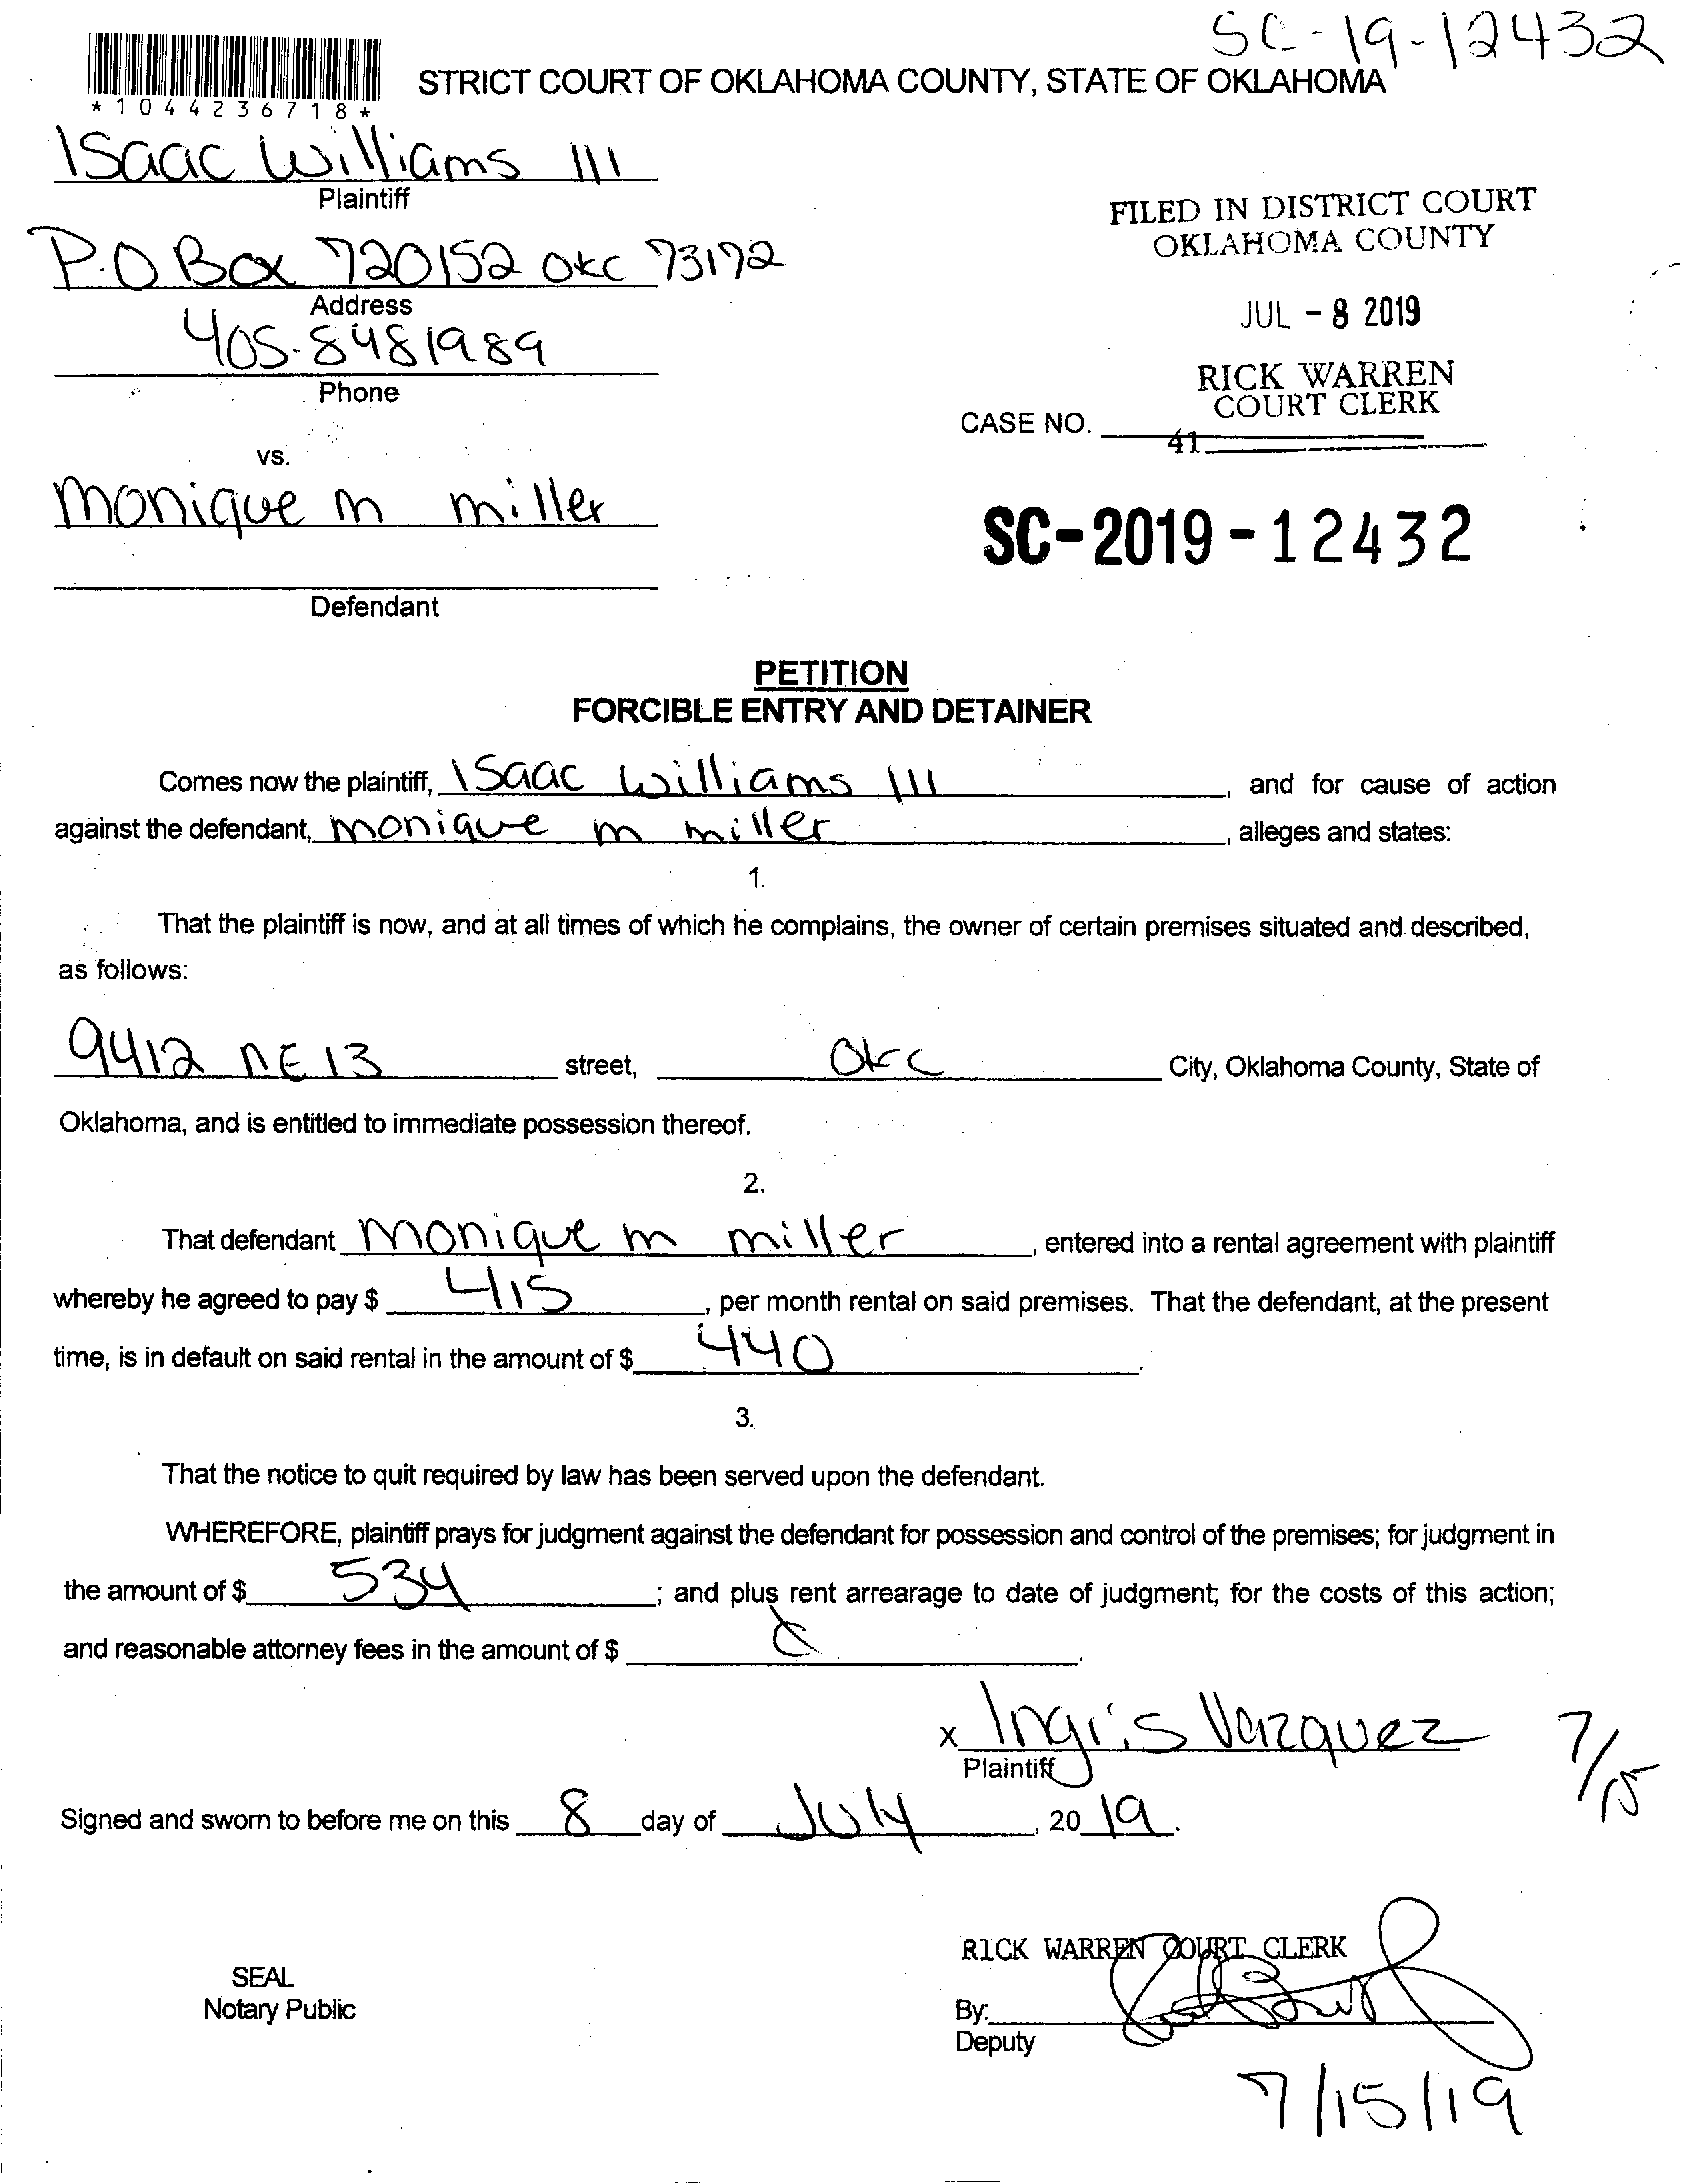 SC-19-12432
STRICT COURT OF OKLAHOMA COUNTY, STATE OF OKLAHOMA
*1044236718*
Isaac Williams III
Plaintiff
FILED IN DISTRICT COURT
OKLAHOMA COUNTY
P.O Box 720152 OKC 73172
Address
JUL - 8 2019
405-8481989
Phone
RICK WARREN
COURT CLERK
CASE NO.
41
vs.
Monique m miller
SC-2019-12432
Defendant
PETITION
FORCIBLE ENTRY AND DETAINER
Comes now the plaintiff, Isaac Williams III, and for cause of action
against the defendant, Monique m miller, alleges and states:
1.
That the plaintiff is now, and at all times of which he complains, the owner of certain premises situated and described,
as follows:
9412 NE 13 street, OKC City, Oklahoma County, State of
Oklahoma, and is entitled to immediate possession thereof.
2.
That defendant Monique m miller, entered into a rental agreement with plaintiff
whereby he agreed to pay $ 415, per month rental on said premises. That the defendant, at the present
time, is in default on said rental in the amount of $ 440.
3.
That the notice to quit required by law has been served upon the defendant.
WHEREFORE, plaintiff prays for judgment against the defendant for possession and control of the premises; for judgment in
the amount of $ 534; and plus rent arrearage to date of judgment; for the costs of this action;
and reasonable attorney fees in the amount of $
x Ingris Vazquez 7/15
Plaintiff
Signed and sworn to before me on this 8 day of July, 2019.
RICK WARREN COURT CLERK
SEAL
Notary Public
By:
Deputy
7/15/19